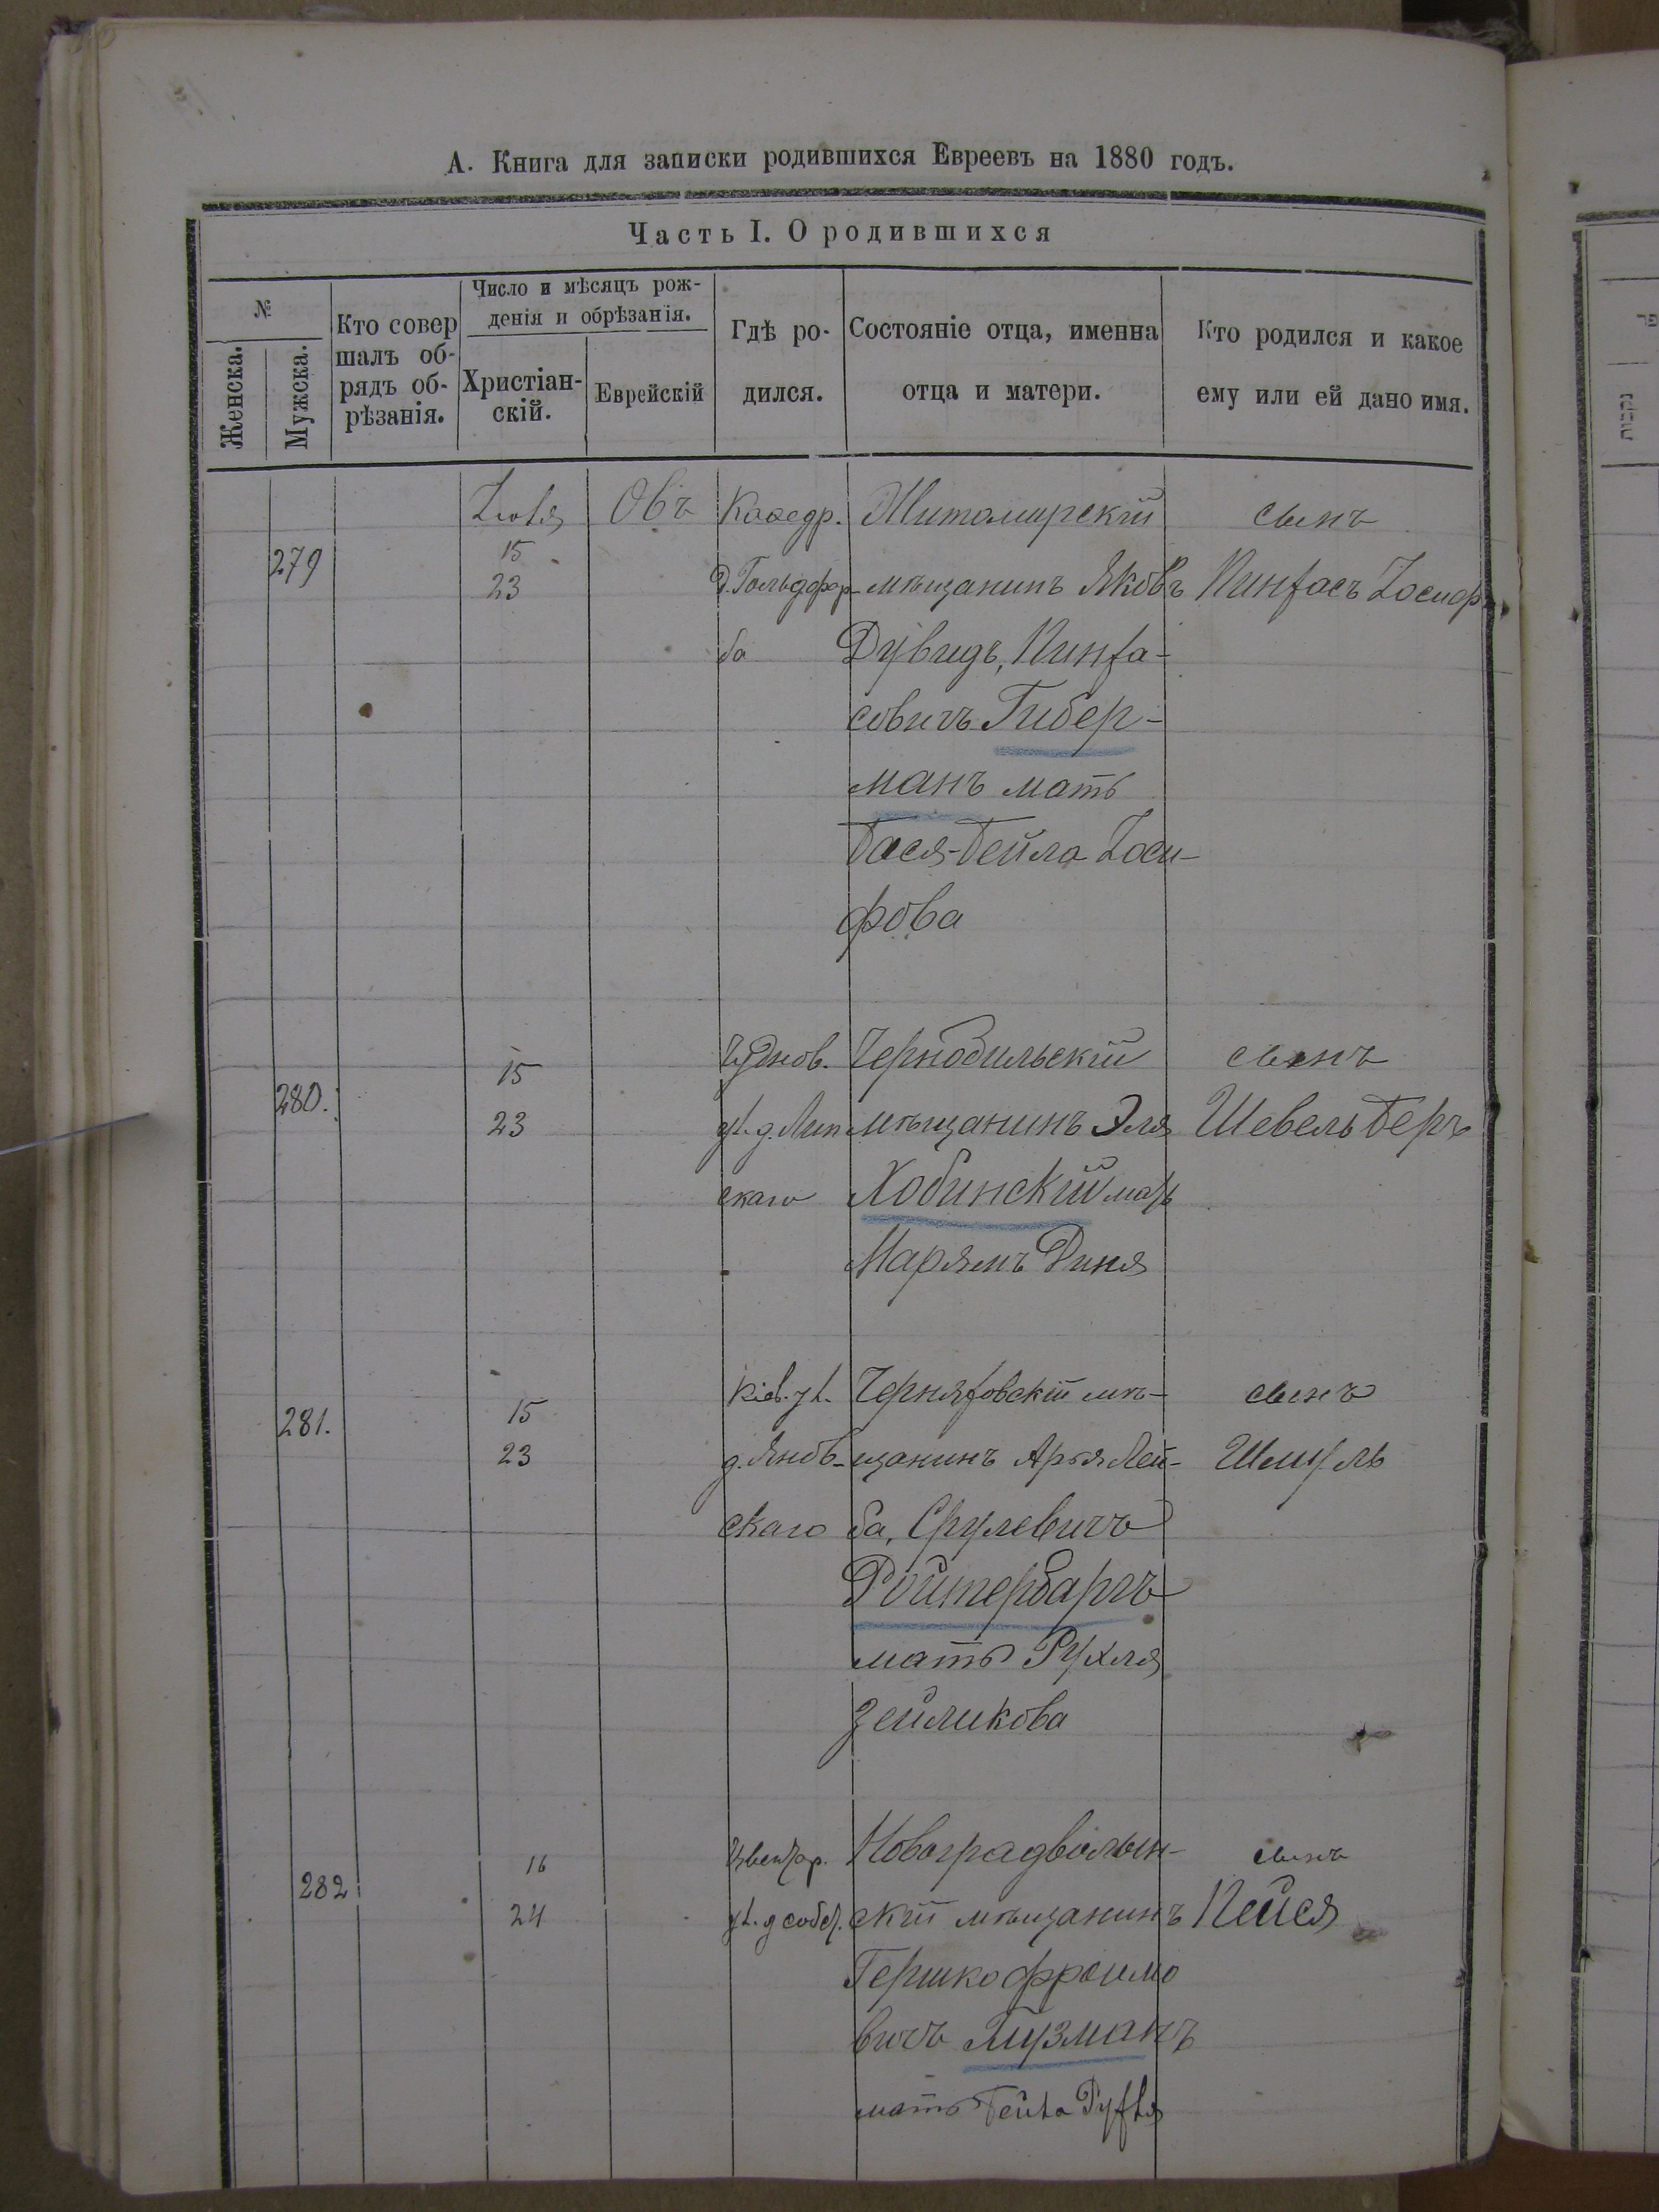 А. Книга для записки родившихся Евреевъ на 1880 годъ.
Часть I. О родившихся
№
Женска.
Мужска.
Кто совер
шалъ об-
рядъ об-
рѣзанія.
Число и мѣсяцъ рож-
денія и обрѣзанія.
Христіан-
скій.
Еврейскій
Гдѣ ро-
дился.
Состояніе отца, именна
отца и матери.
Кто родился и какое
ему или ей дано имя.
279
Іюля
15
23
Объ
Каѳедр.
д. Гольдфар-
ба
Житомирскій
мѣщанинъ Яковъ
Дувидъ, Пинха-
совичъ Гибер-
манъ мать
Бася-Бейла Іоси-
фова
сынъ
Пинхасъ Іосифъ
280.
15
23
Чуднов.
ул. д. Лип
скаго
Чернобильскій
мѣщанинъ Эля
Хобинскій мать
Марямъ Диня
сынъ
Шевель Беръ
281.
15
23
Кіев. ул.
д. Янов-
скаго
Черняховскій мѣ-
щанинъ Арья Лей-
ба, Срулевичъ
Ройтербаргъ
мать Рухля
Зейликова
сынъ
Шмуль
282
16
24
ул. д собст.
Новоградволын-
скій мѣщанинъ
Гершко Фроимо
вичъ
мать Бейла Рухля
сынъ
Пейся
נקבות